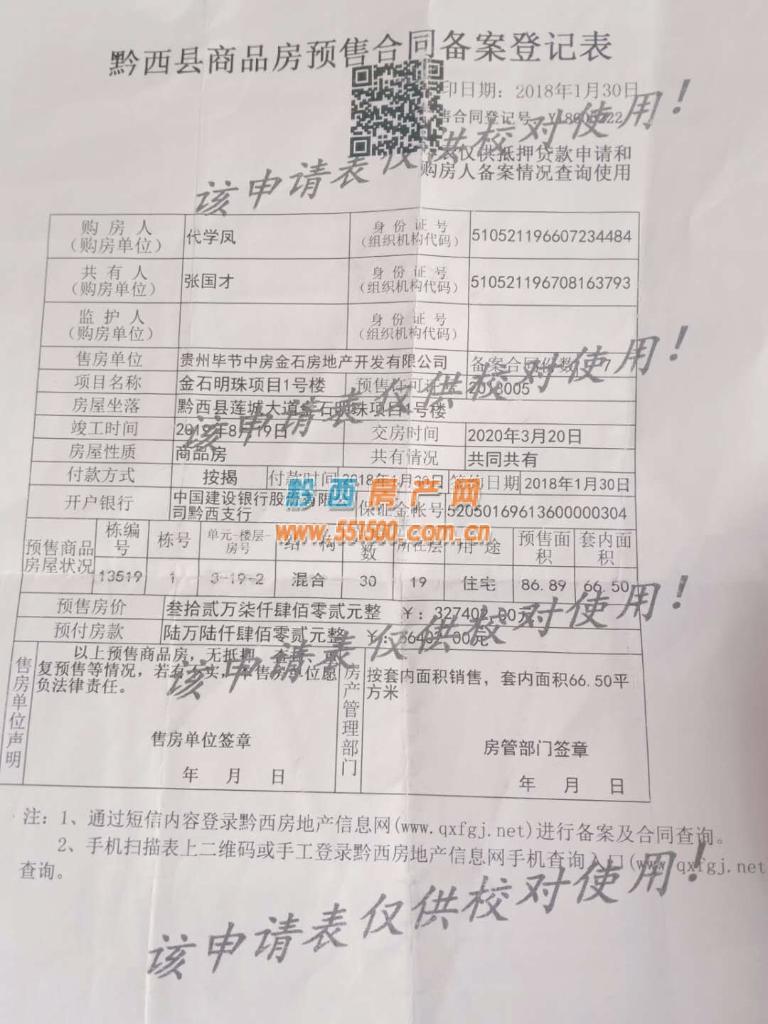 黔西县商品房预售合同备案登记表
印日期：2018年1月30日
售合同登记号
表仅供抵押贷款申请和
购房人备案情况查询使用
该申请表仅供校对使用！
购房人（购房单位） 代学凤 身份证号（组织机构代码） 510521196607234484
共有人（购房单位） 张国才 身份证号（组织机构代码） 510521196708163793
监护人（购房单位） 身份证号（组织机构代码）
售房单位 贵州毕节中房金石房地产开发有限公司 备案合同份数 7
项目名称 金石明珠项目1号楼 预售许可证
房屋坐落 黔西县莲城大道金石明珠项目1号楼
该申请表仅供校对使用！
竣工时间 2019年8月19日 交房时间 2020年3月20日
房屋性质 商品房 共有情况 共同共有
付款方式 按揭 付款时间 2018年1月30日 签约日期 2018年1月30日
开户银行 中国建设银行股份有限公司黔西支行 保证金帐号 52050169613600000304
黔西房产网
www.551500.com.cn
预售商品房屋状况 栋编号 栋号 单元-楼层-房号 结构 数 所在层 用途 预售面积 套内面积
13519 1 3-19-2 混合 30 19 住宅 86.89 66.50
预售房价 叁拾贰万柒仟肆佰零贰元整 ￥：327402.00元
预付房款 陆万陆仟肆佰零贰元整 ￥：66402.00元
该申请表仅供校对使用！
售房单位声明
以上预售商品房，无抵押、查封、重
复预售等情况，若有不实，本售房单位愿
负法律责任。
售房单位签章
年 月 日
房产管理部门
按套内面积销售，套内面积66.50平
方米
房管部门签章
年 月 日
注：1、通过短信内容登录黔西房地产信息网(www.qxfgj.net)进行备案及合同查询。
2、手机扫描表上二维码或手工登录黔西房地产信息网手机查询入口(www.qxfgj.net
查询。
该申请表仅供校对使用！